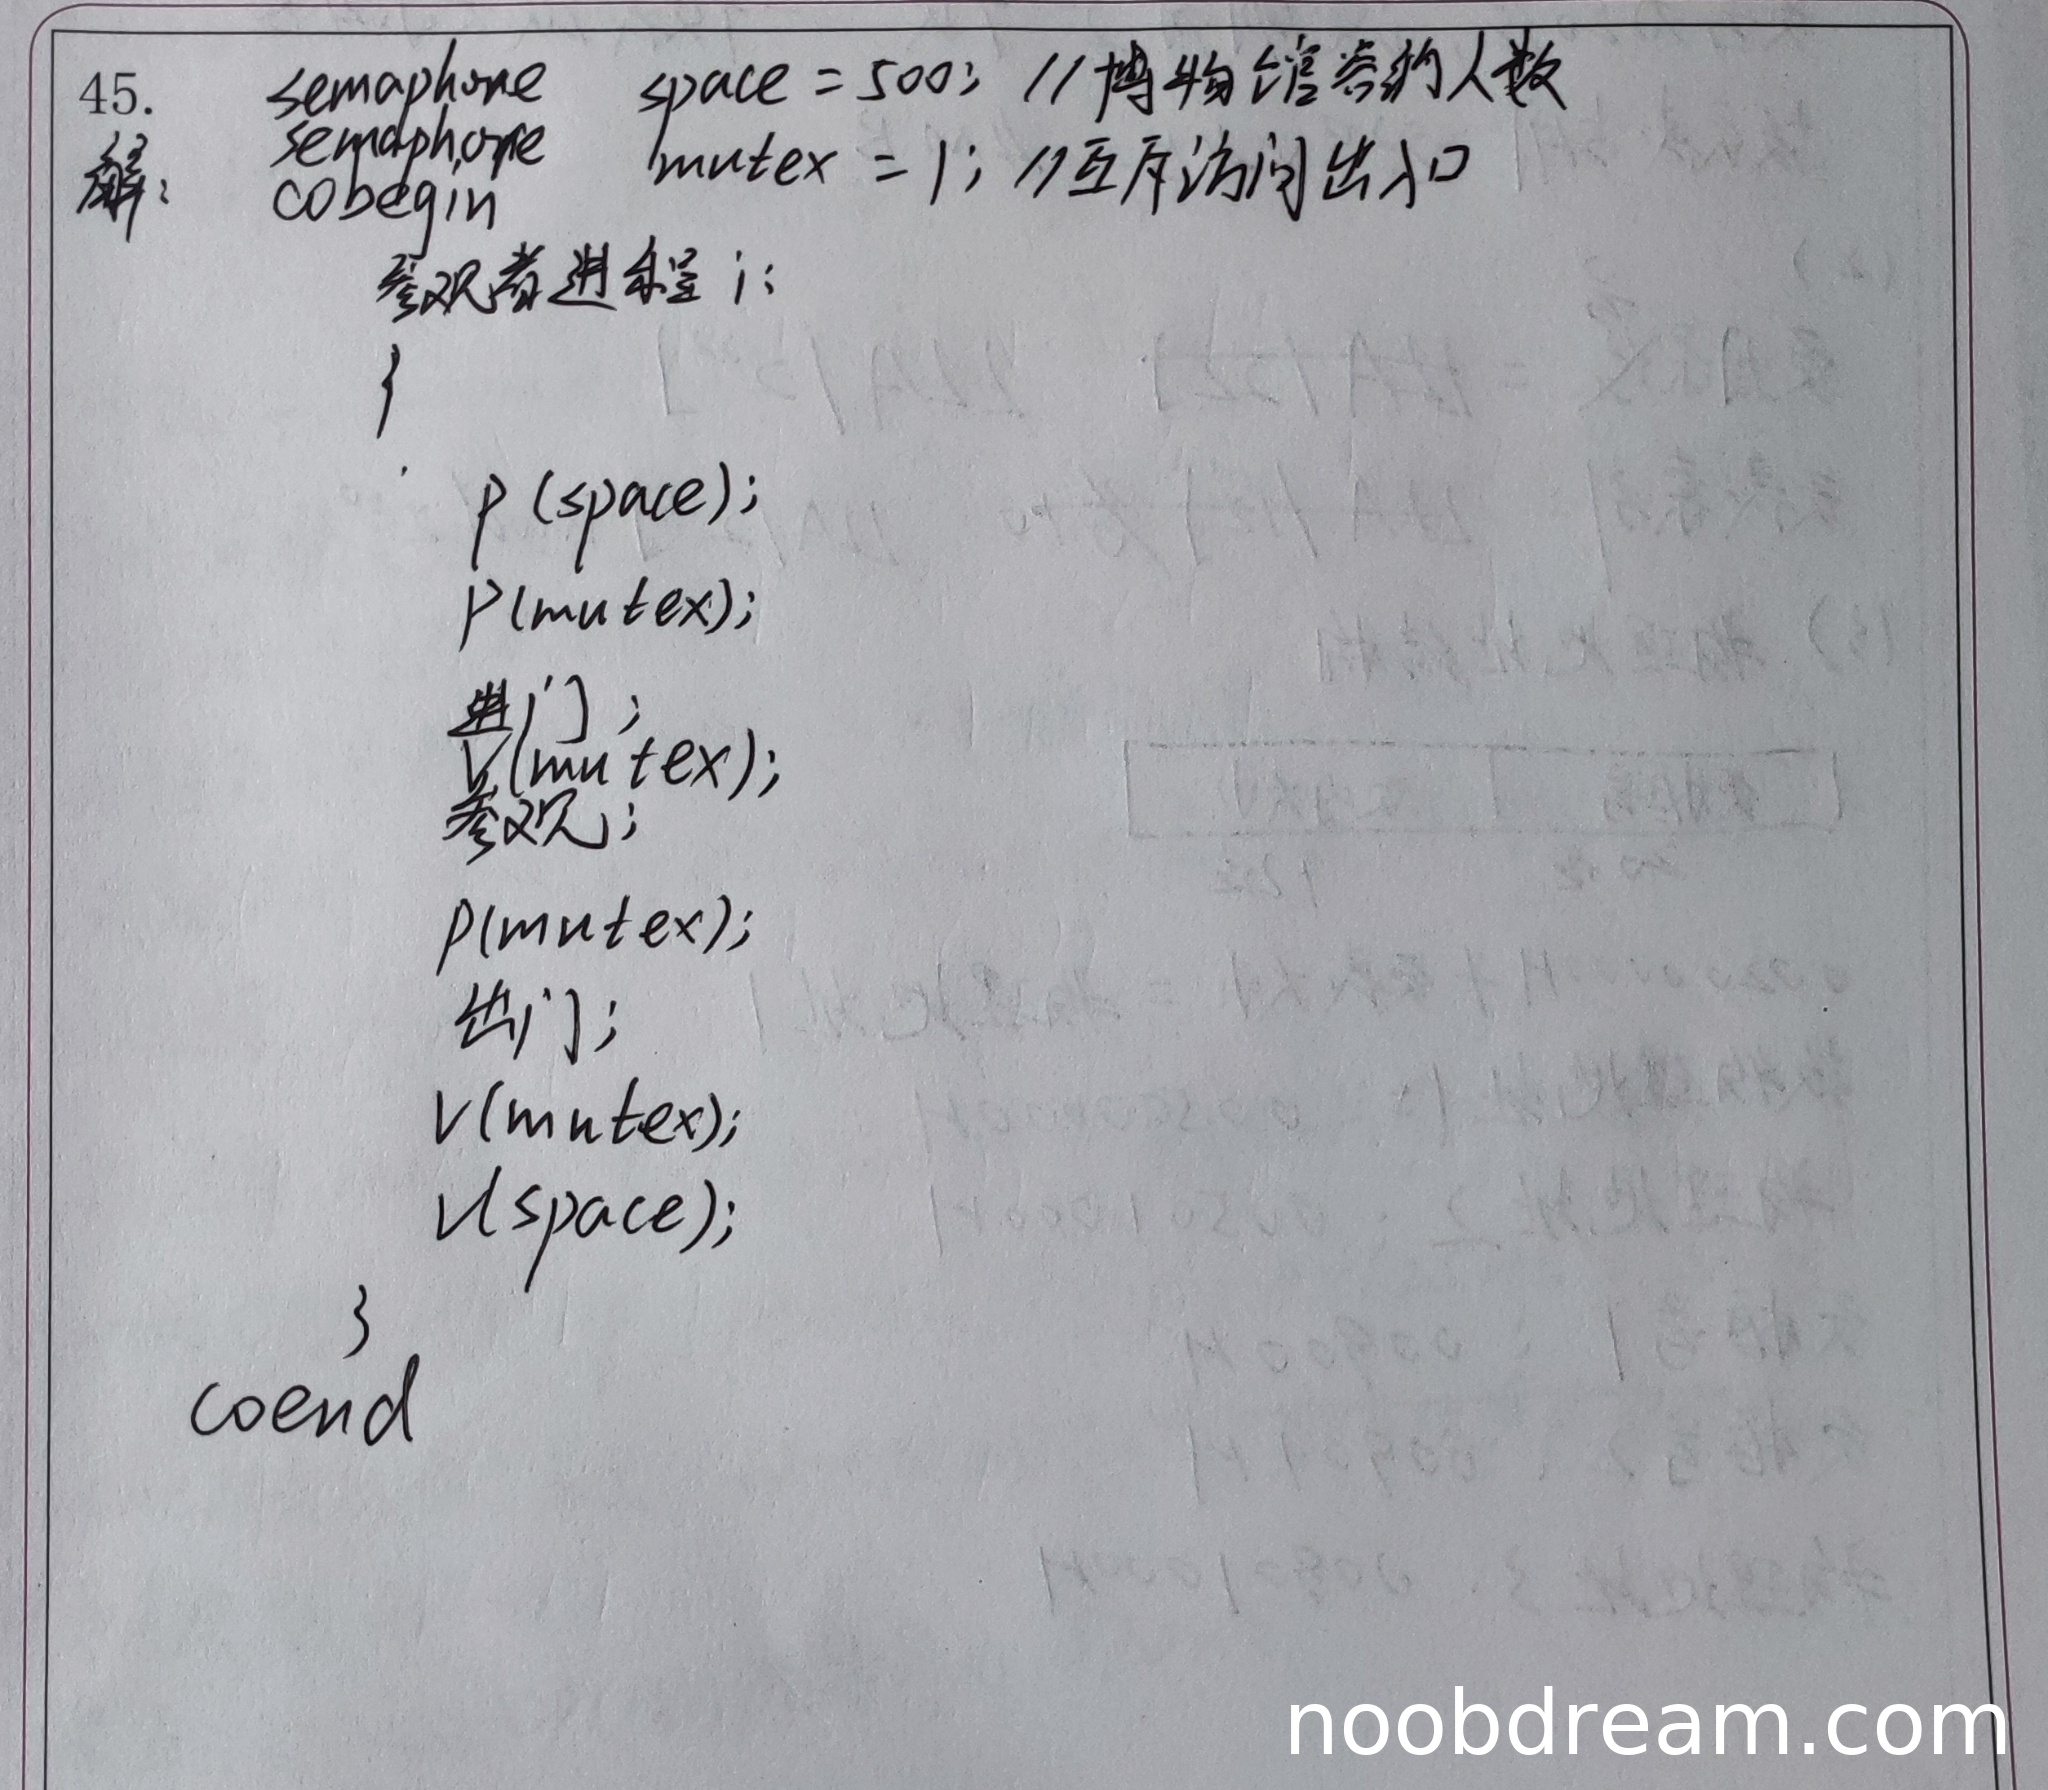 45. semaphore space = 500; //博物馆容纳人数
解: semaphore mutex = 1; //互斥访问出入口
cobegin
参观者进程 i:
{
p(space);
p(mutex);
进门;
V(mutex);
参观;
p(mutex);
出门;
V(mutex);
V(space);
}
coend
noobdream.com